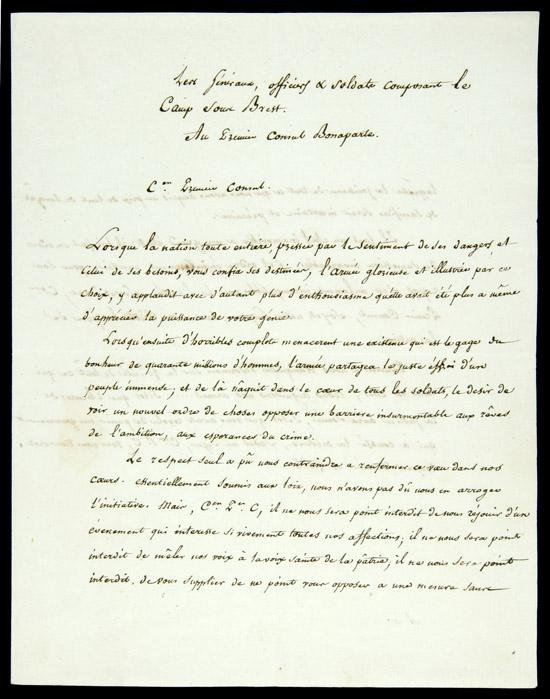 Les Généraux, officiers & soldats composant le
Camp sous Brest.
Au Premier Consul Bonaparte.
C.en Premier Consul.
Lorsque la nation toute entière, pressée par le sentiment de ses dangers, et
celui de ses besoins, vous confia ses destinées, l'armée glorieuse et illustrée par ce
choix, y applaudit avec d'autant plus d'enthousiasme qu'elle avait été plus a même
d'apprécier la puissance de votre génie.
Lorsqu'ensuite d'horribles complots menacerent une existence qui est le gage du
bonheur de quarante millions d'hommes, l'armée partagea le juste effroi d'un
peuple immense; et de là nâquit dans le cœur de tous les soldats, le desir de
voir un nouvel ordre de choses opposer une barrière insurmontable aux rêves
de l'ambition, aux esperances du crime.
Le respect seul a pû nous contraindre a renfermer ce vœu dans nos
cœurs. essentiellement soumis aux loix, nous n'avons pas dû nous en arroger
l'initiative. Mais, C.en P.er C, il ne nous sera point interdit de nous réjouir d'un
évenement qui interesse si vivement toutes nos affections, il ne nous sera point
interdit de mêler nos voix à la voix sainte de la patrie, il ne nous sera point
interdit. de vous supplier de ne point vous opposer a une mesure sans